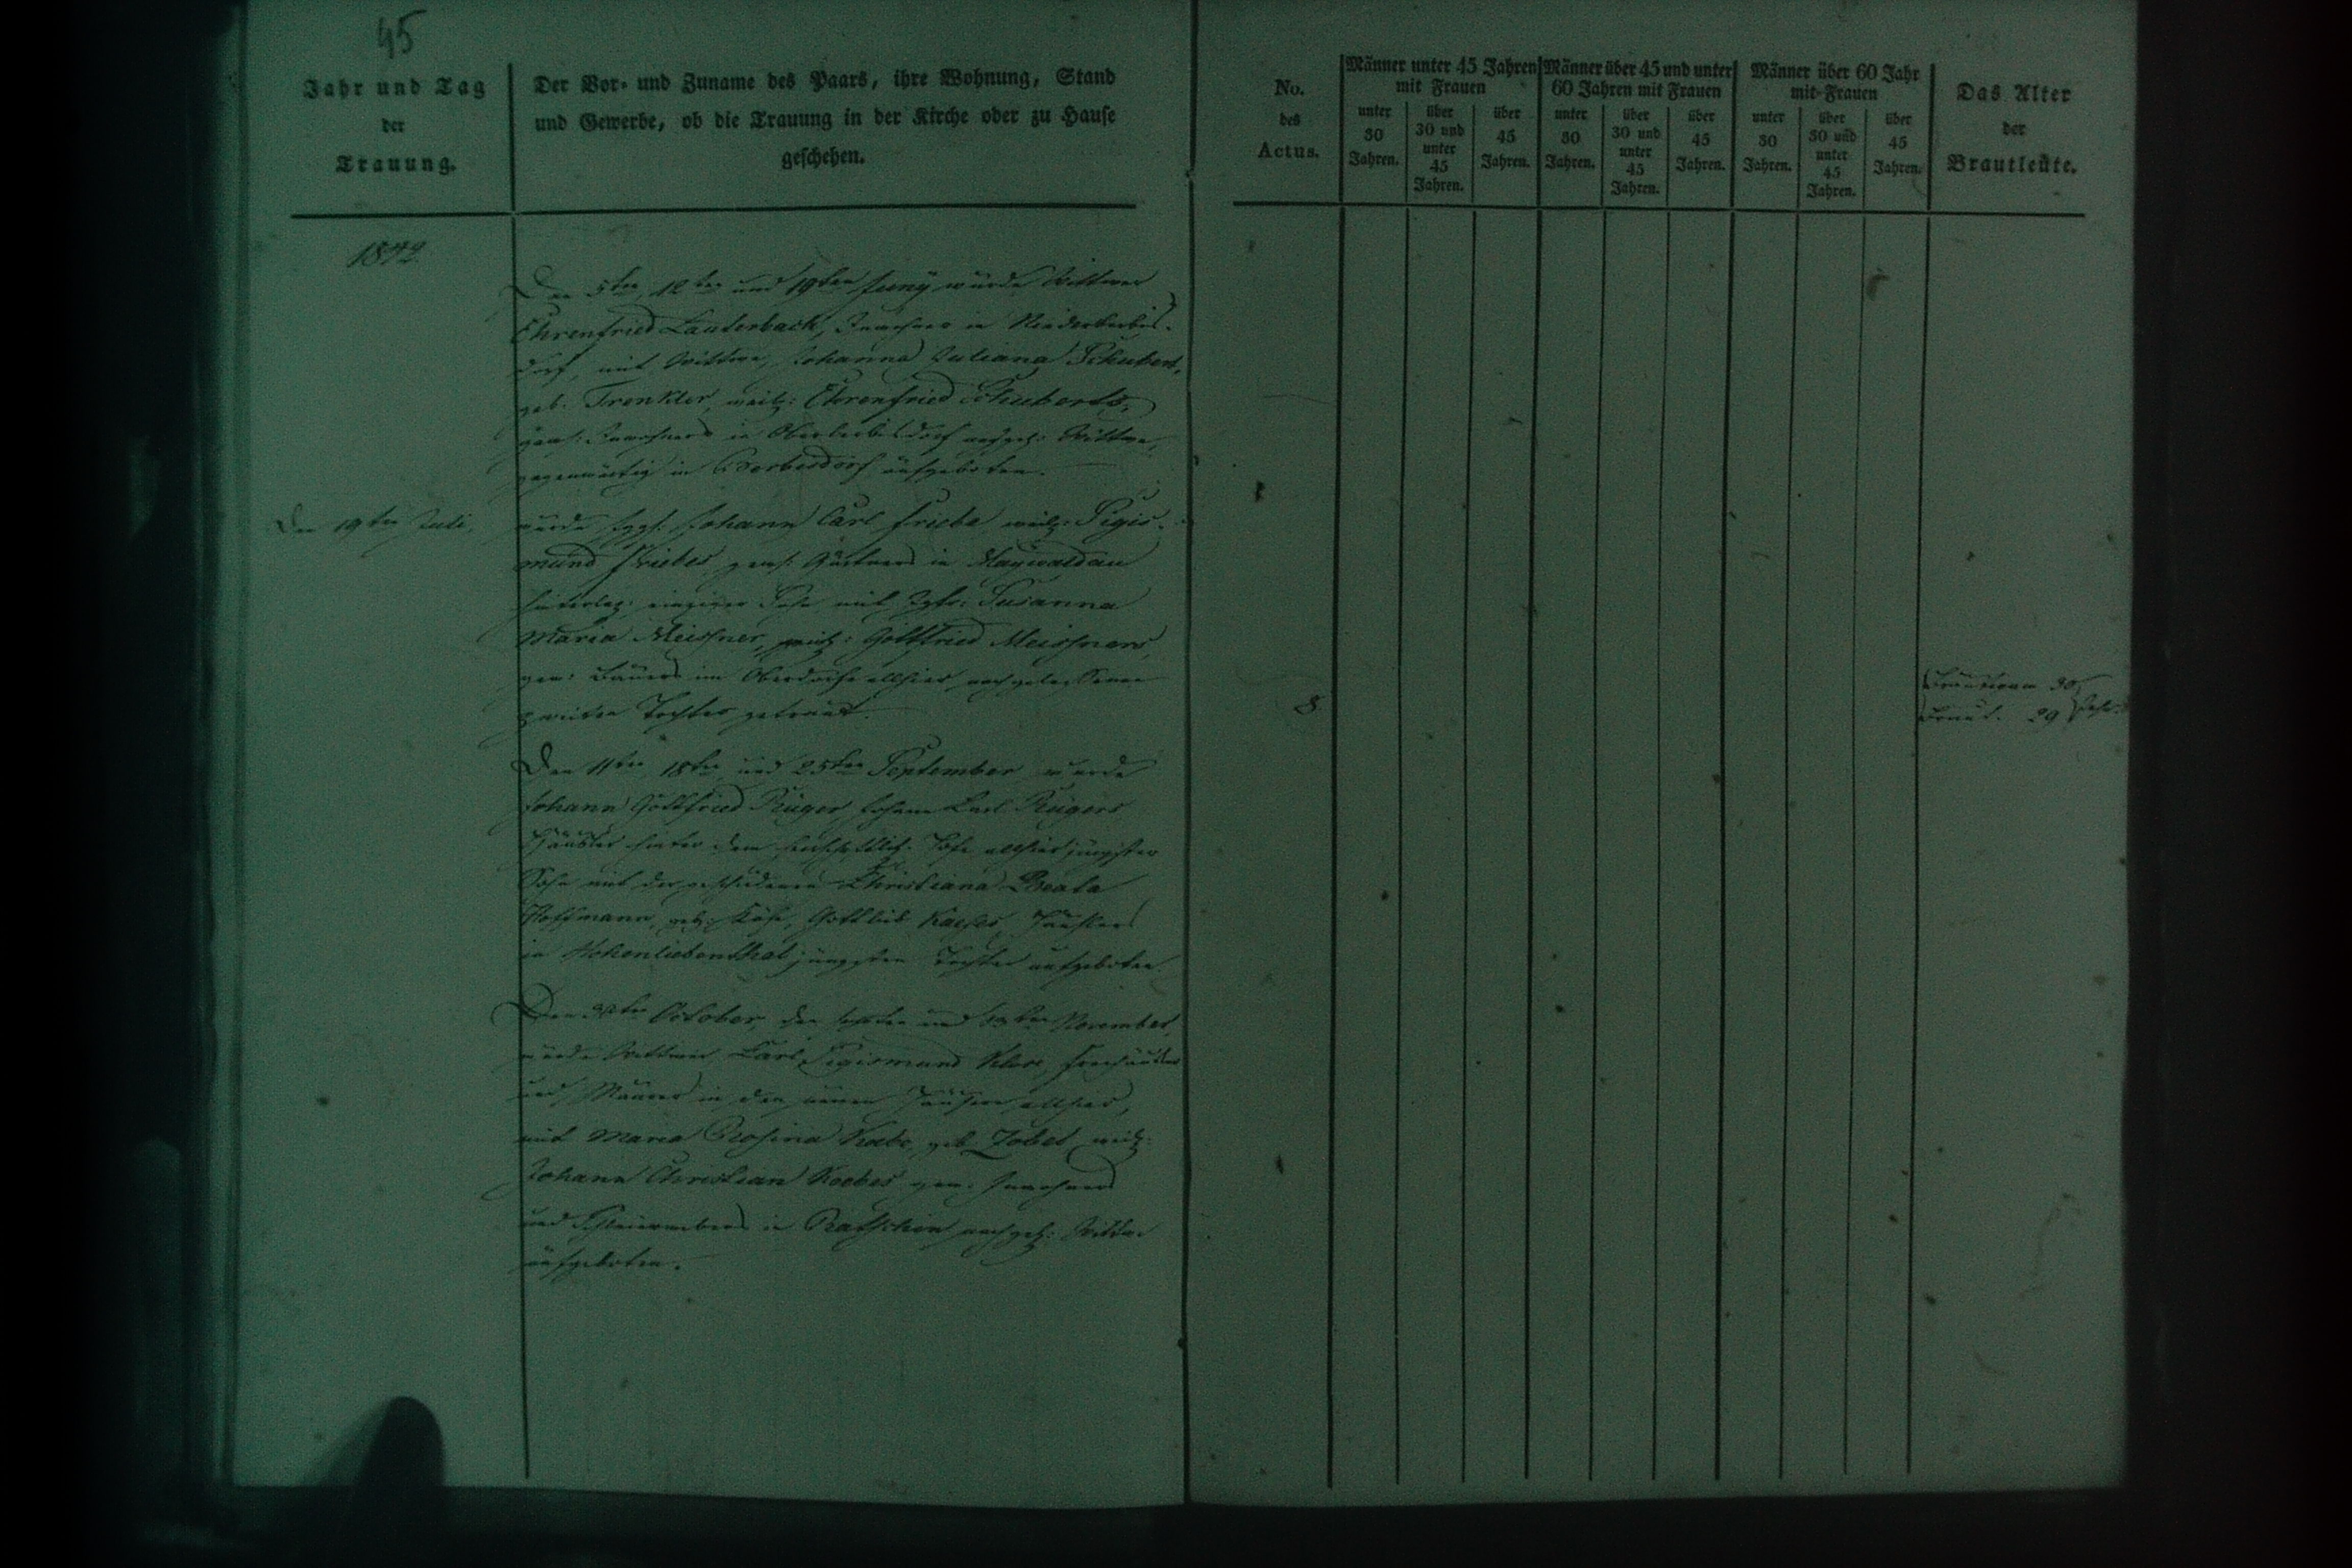 45
Jahr und Tag
der
Trauung.
Der Vor- und Zuname des Paars, ihre Wohnung, Stand
und Gewerbe, ob die Trauung in der Kirche oder zu Hause
geschehen.
No.
des
Actus.
Männer unter 45 Jahren
mit Frauen
unter
30
Jahren.
über
30 und
unter
45
Jahren.
über
45
Jahren.
Männer über 45 und unter
60 Jahren mit Frauen
unter
30
Jahren.
über
30 und
unter
45
Jahren.
über
45
Jahren.
Männer über 60 Jahr
mit Frauen
unter
30
Jahren.
über
30 und
unter
45
Jahren.
über
45
Jahren.
Das Alter
der
Brautleute.
1842
Den 5ten, 12ten und 19ten Juny wurde Wittwer
Ehrenfried Lauterbach, Inwohner in Niederberbis-
dorf, mit Wittwe, Johanna Juliana Schubert,
geb. Trenkler, weil: Ehrenfried Schuberts,
gew: Inwohners in nachgel: Wittwe,
gegenwärtig in Berbisdorf aufgeboten.
Den 19ten Juli,
wurde Jggs. Johann Carl Friebe weil: Sigis-
mund Friebes, gew: Gärtners in Maywaldau
hinterlaß: einziger Sohn mit Jgfr: Susanna
Maria Meissner, weil: Gottfried Meissners,
gew: Bauers im Oberdorfe allhier nachgelassenen
zweiten Tochter getraut.
8.
Bräutigam 30
Braut. 29 Jahr.
Den 11ten 18ten und 25ten September wurde
Johann Gottfried Rüger Johann Carl Rügers
Häusler hinter dem Hofe allhier jüngster
Sohn mit der geschiedenen Christiana Beata
Hoffmann, geb: Käse, Gottlieb Kaeses, Häuslers
in Hohenliebenthal jüngsten Tochter aufgeboten.
Den October, den und 13ten November,
wurde Wittwer Carl Sigismund Klose, Freihäusler
und Maurer in den neuen Häusern allhier,
mit Maria Rosina geb. Zobel weil:
Johann Christian gew: Inwohners
und Schleierwebers in Ratschin nachgel: Wittwe
aufgeboten.